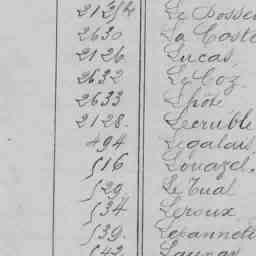 2125 bis Le Posse
2630 La Coste
2126 Lucas
2632 Le Coz
2633 Lhôte
2128 Lecruble
494 Legalais
516 Louazel
529 Le Tual
534 Leroux
539 Lepanneti
542 Launay